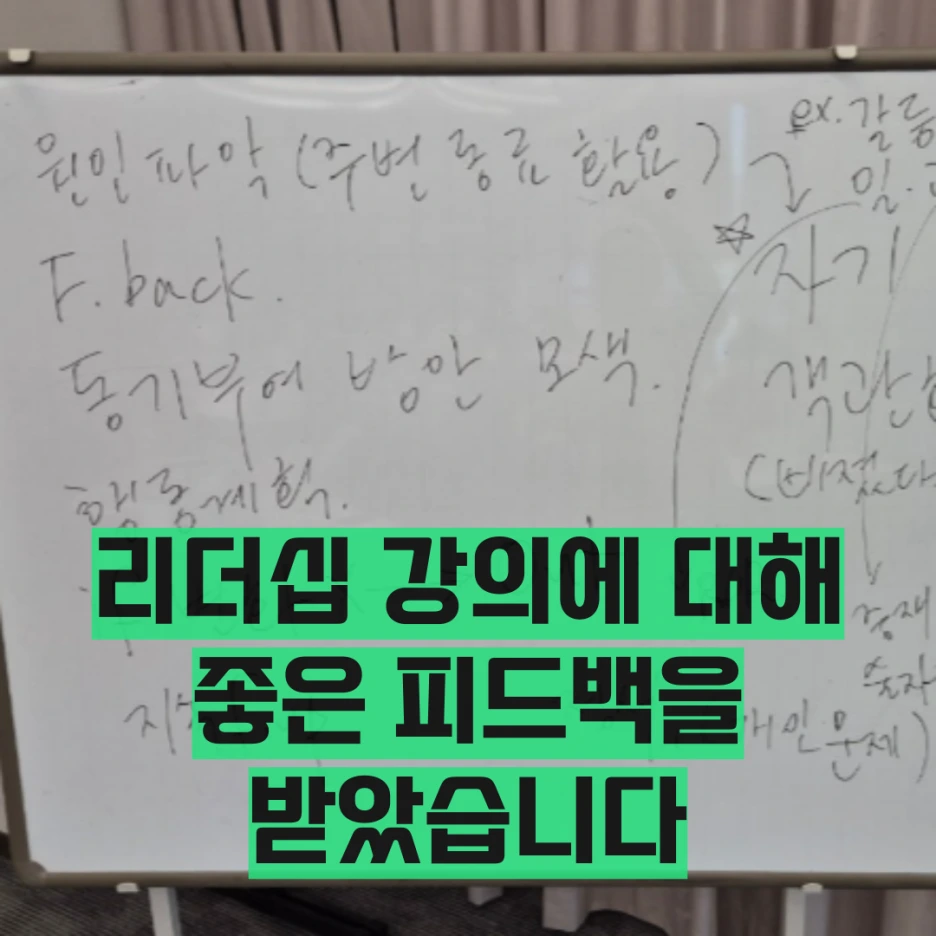 원인파악 (주변 동료 활용)
ex. 갈등
일.
F. back.
☆ 자기
동기부여 방안 모색.
객관
행동계획.
리더십 강의에 대해
좋은 피드백을
개인문제)
받았습니다